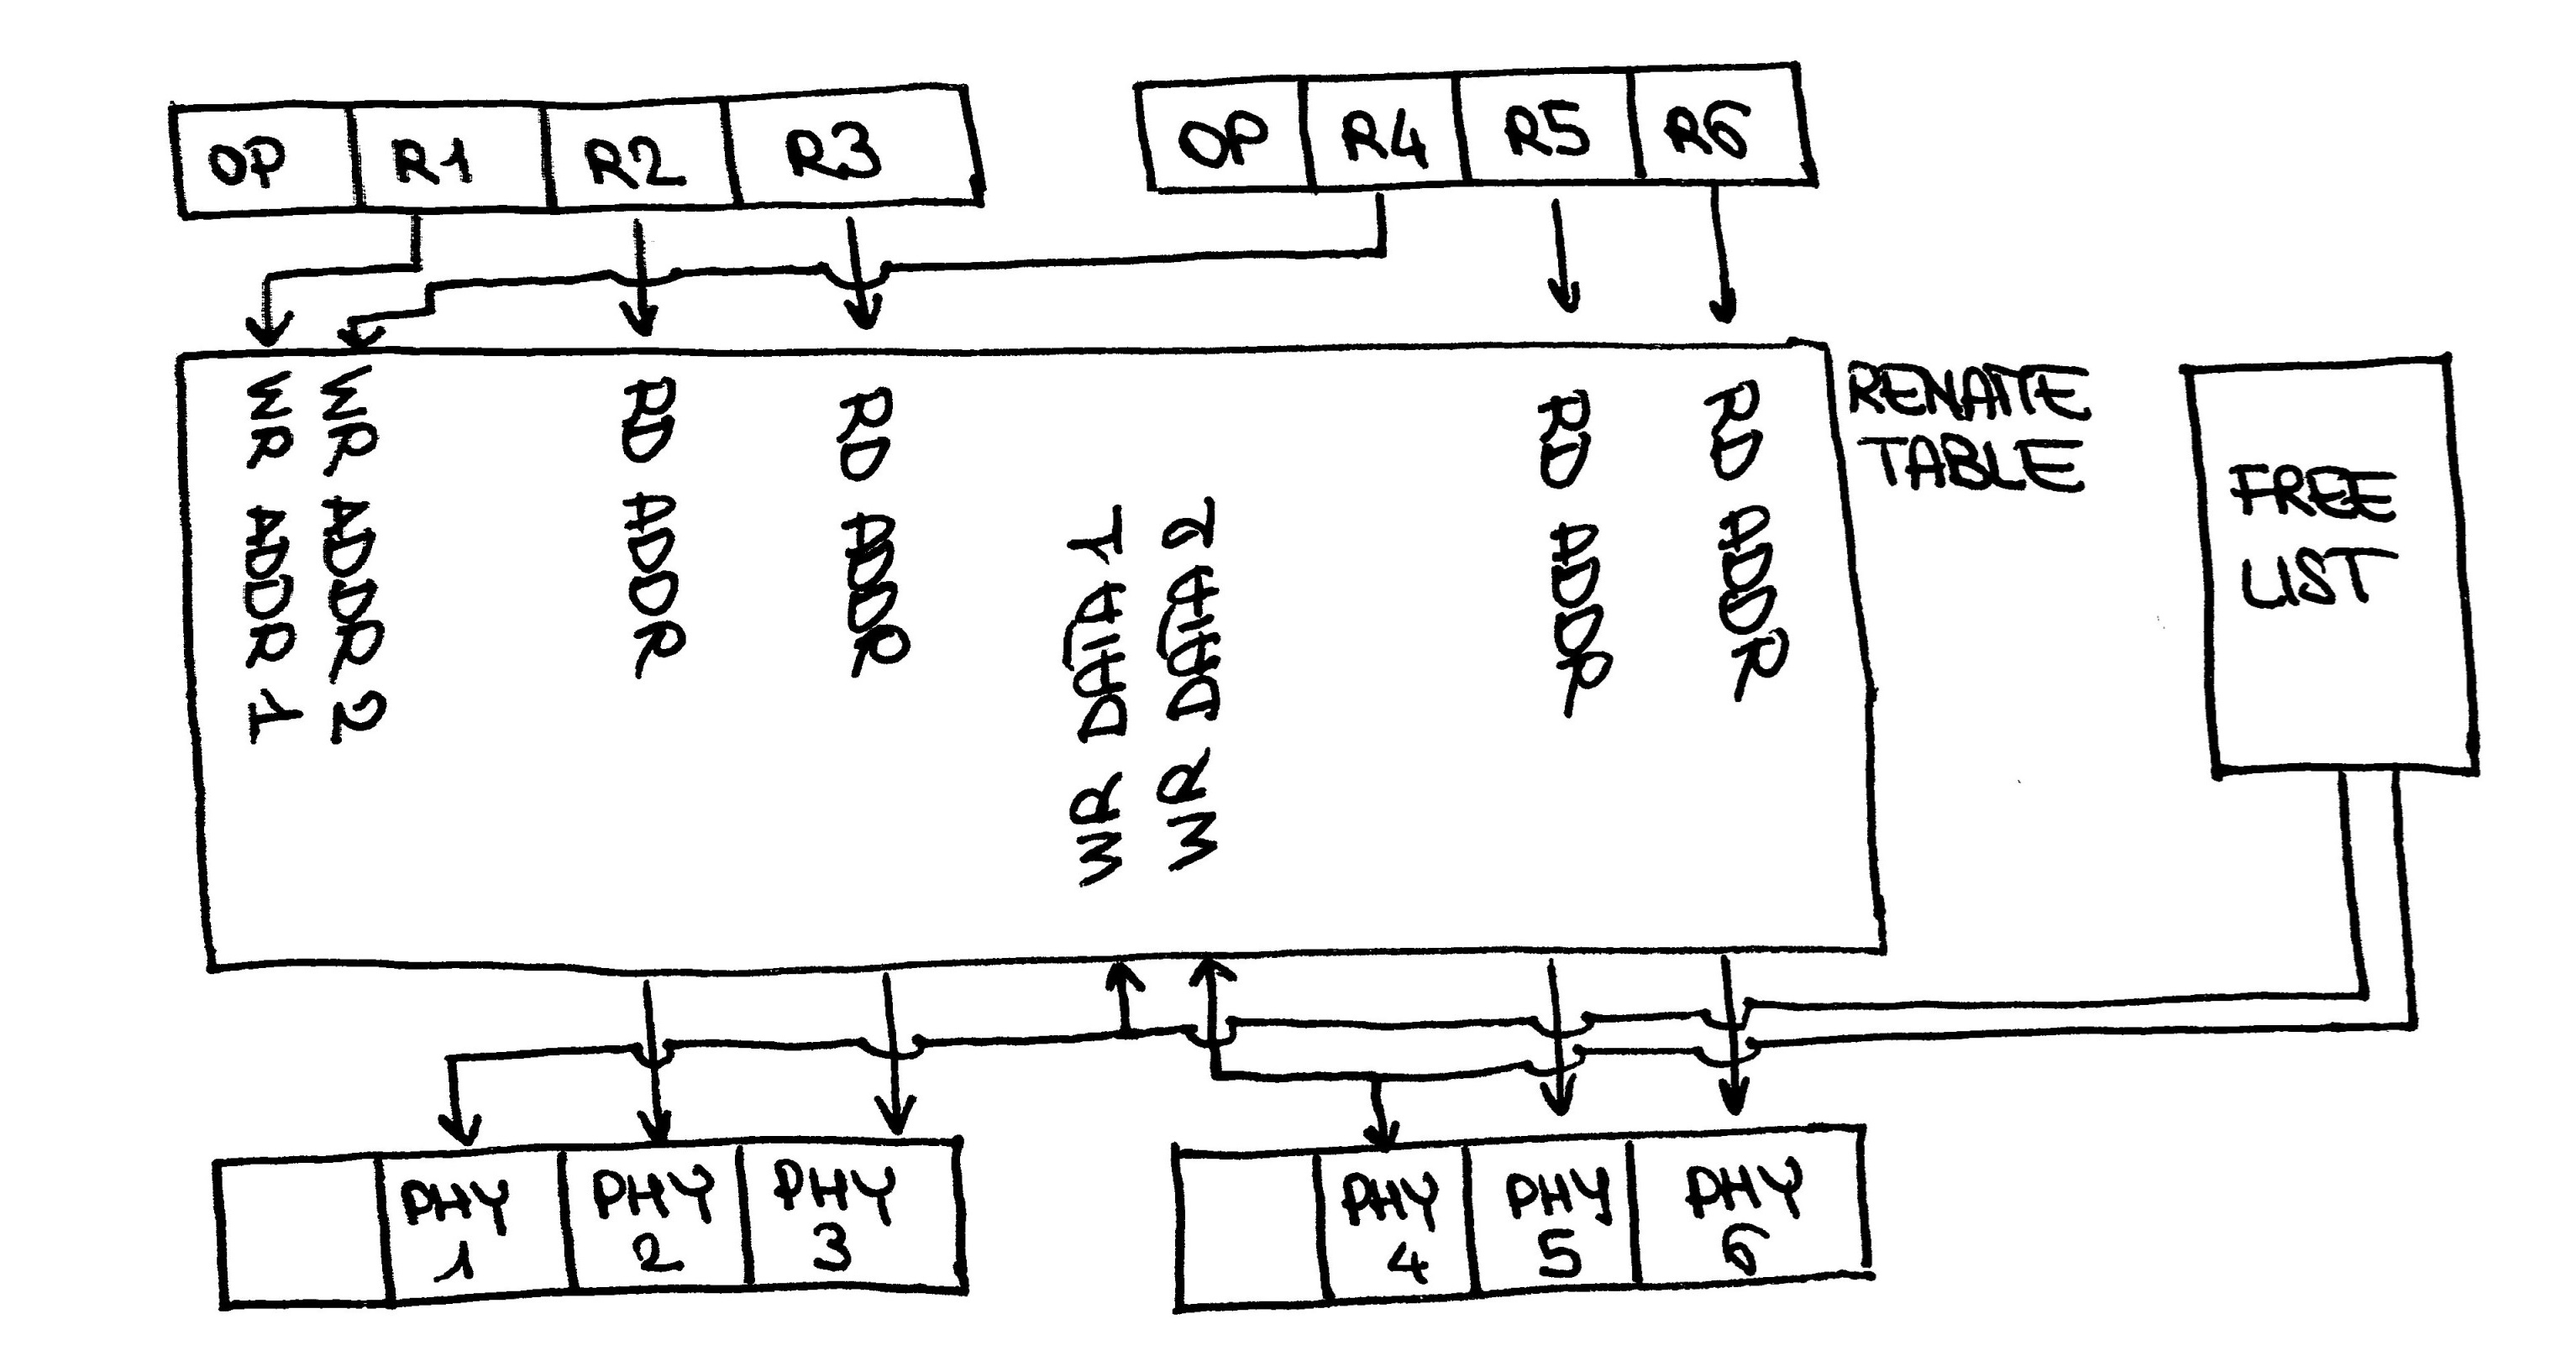 OP R1 R2 R3
OP R4 R5 R6
WR ADDR 1
WR ADDR 2
RD ADDR
RD ADDR
WR DATA 1
WR DATA 2
RD ADDR
RD ADDR
RENAME
TABLE
FREE
LIST
PHY
1
PHY
2
PHY
3
PHY
4
PHY
5
PHY
6